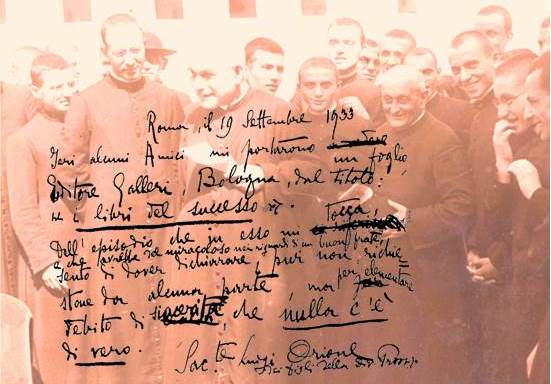 Roma, il 19 Settembre 1933
Ieri alcuni Amici mi portarono a vedere un foglio
Editore Galleri, Bologna, dal titolo:
« i libri del successo ».
Dell'episodio che in esso mi tocca,
e che avrebbe del miracoloso nei riguardi di un buon frate,
sento di dover dichiarare, pur non richie
stone da alcuna parte, ma per elementare
debito di sincerità, che nulla c'è
di vero.
Sac.te Luigi Orione
dei Figli della Div. Provv.